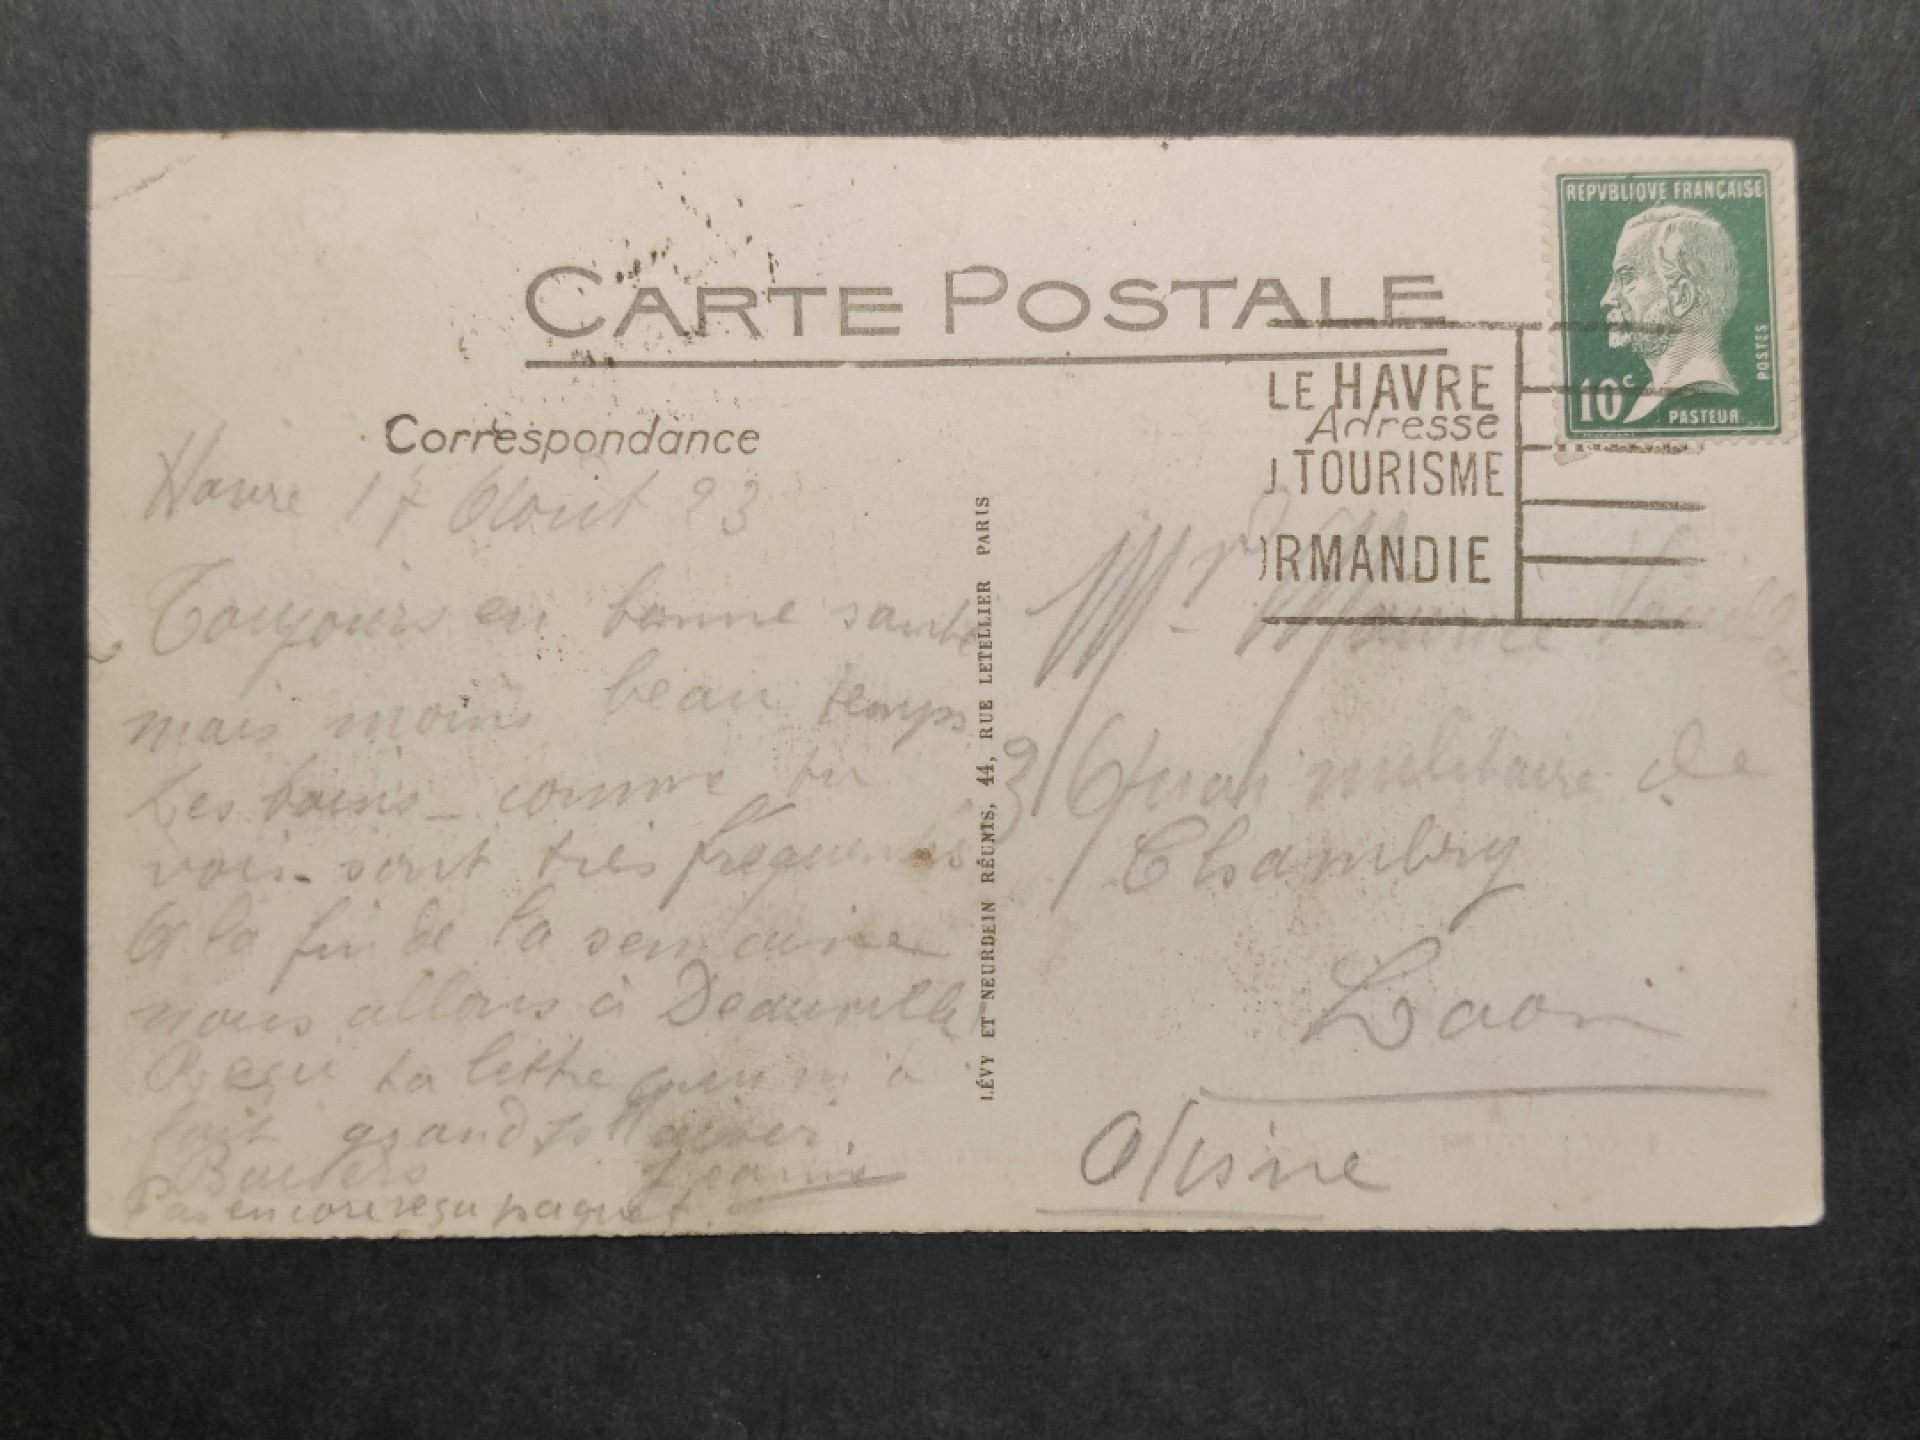 CARTE POSTALE
REPVBLIQVE FRANÇAISE
POSTES
10c
PASTEUR
LE HAVRE
TOURISME
ORMANDIE
Correspondance
Adresse
Havre 17 Aout 23
Toujours en bonne santé
mais moins beau temps
Les bains - comme tu
vois - sont très fréquentés
A la fin de la semaine
nous allons à Deauville
Reçu ta lettre qui m'a
fait grand plaisir.
Baisers Jeanne
pas encore reçu paquet.
LÉVY ET NEURDEIN RÉUNIS, 44, RUE LETELLIER PARIS
Mr Maurice
militaire de
Chambry
Laon
Aisne